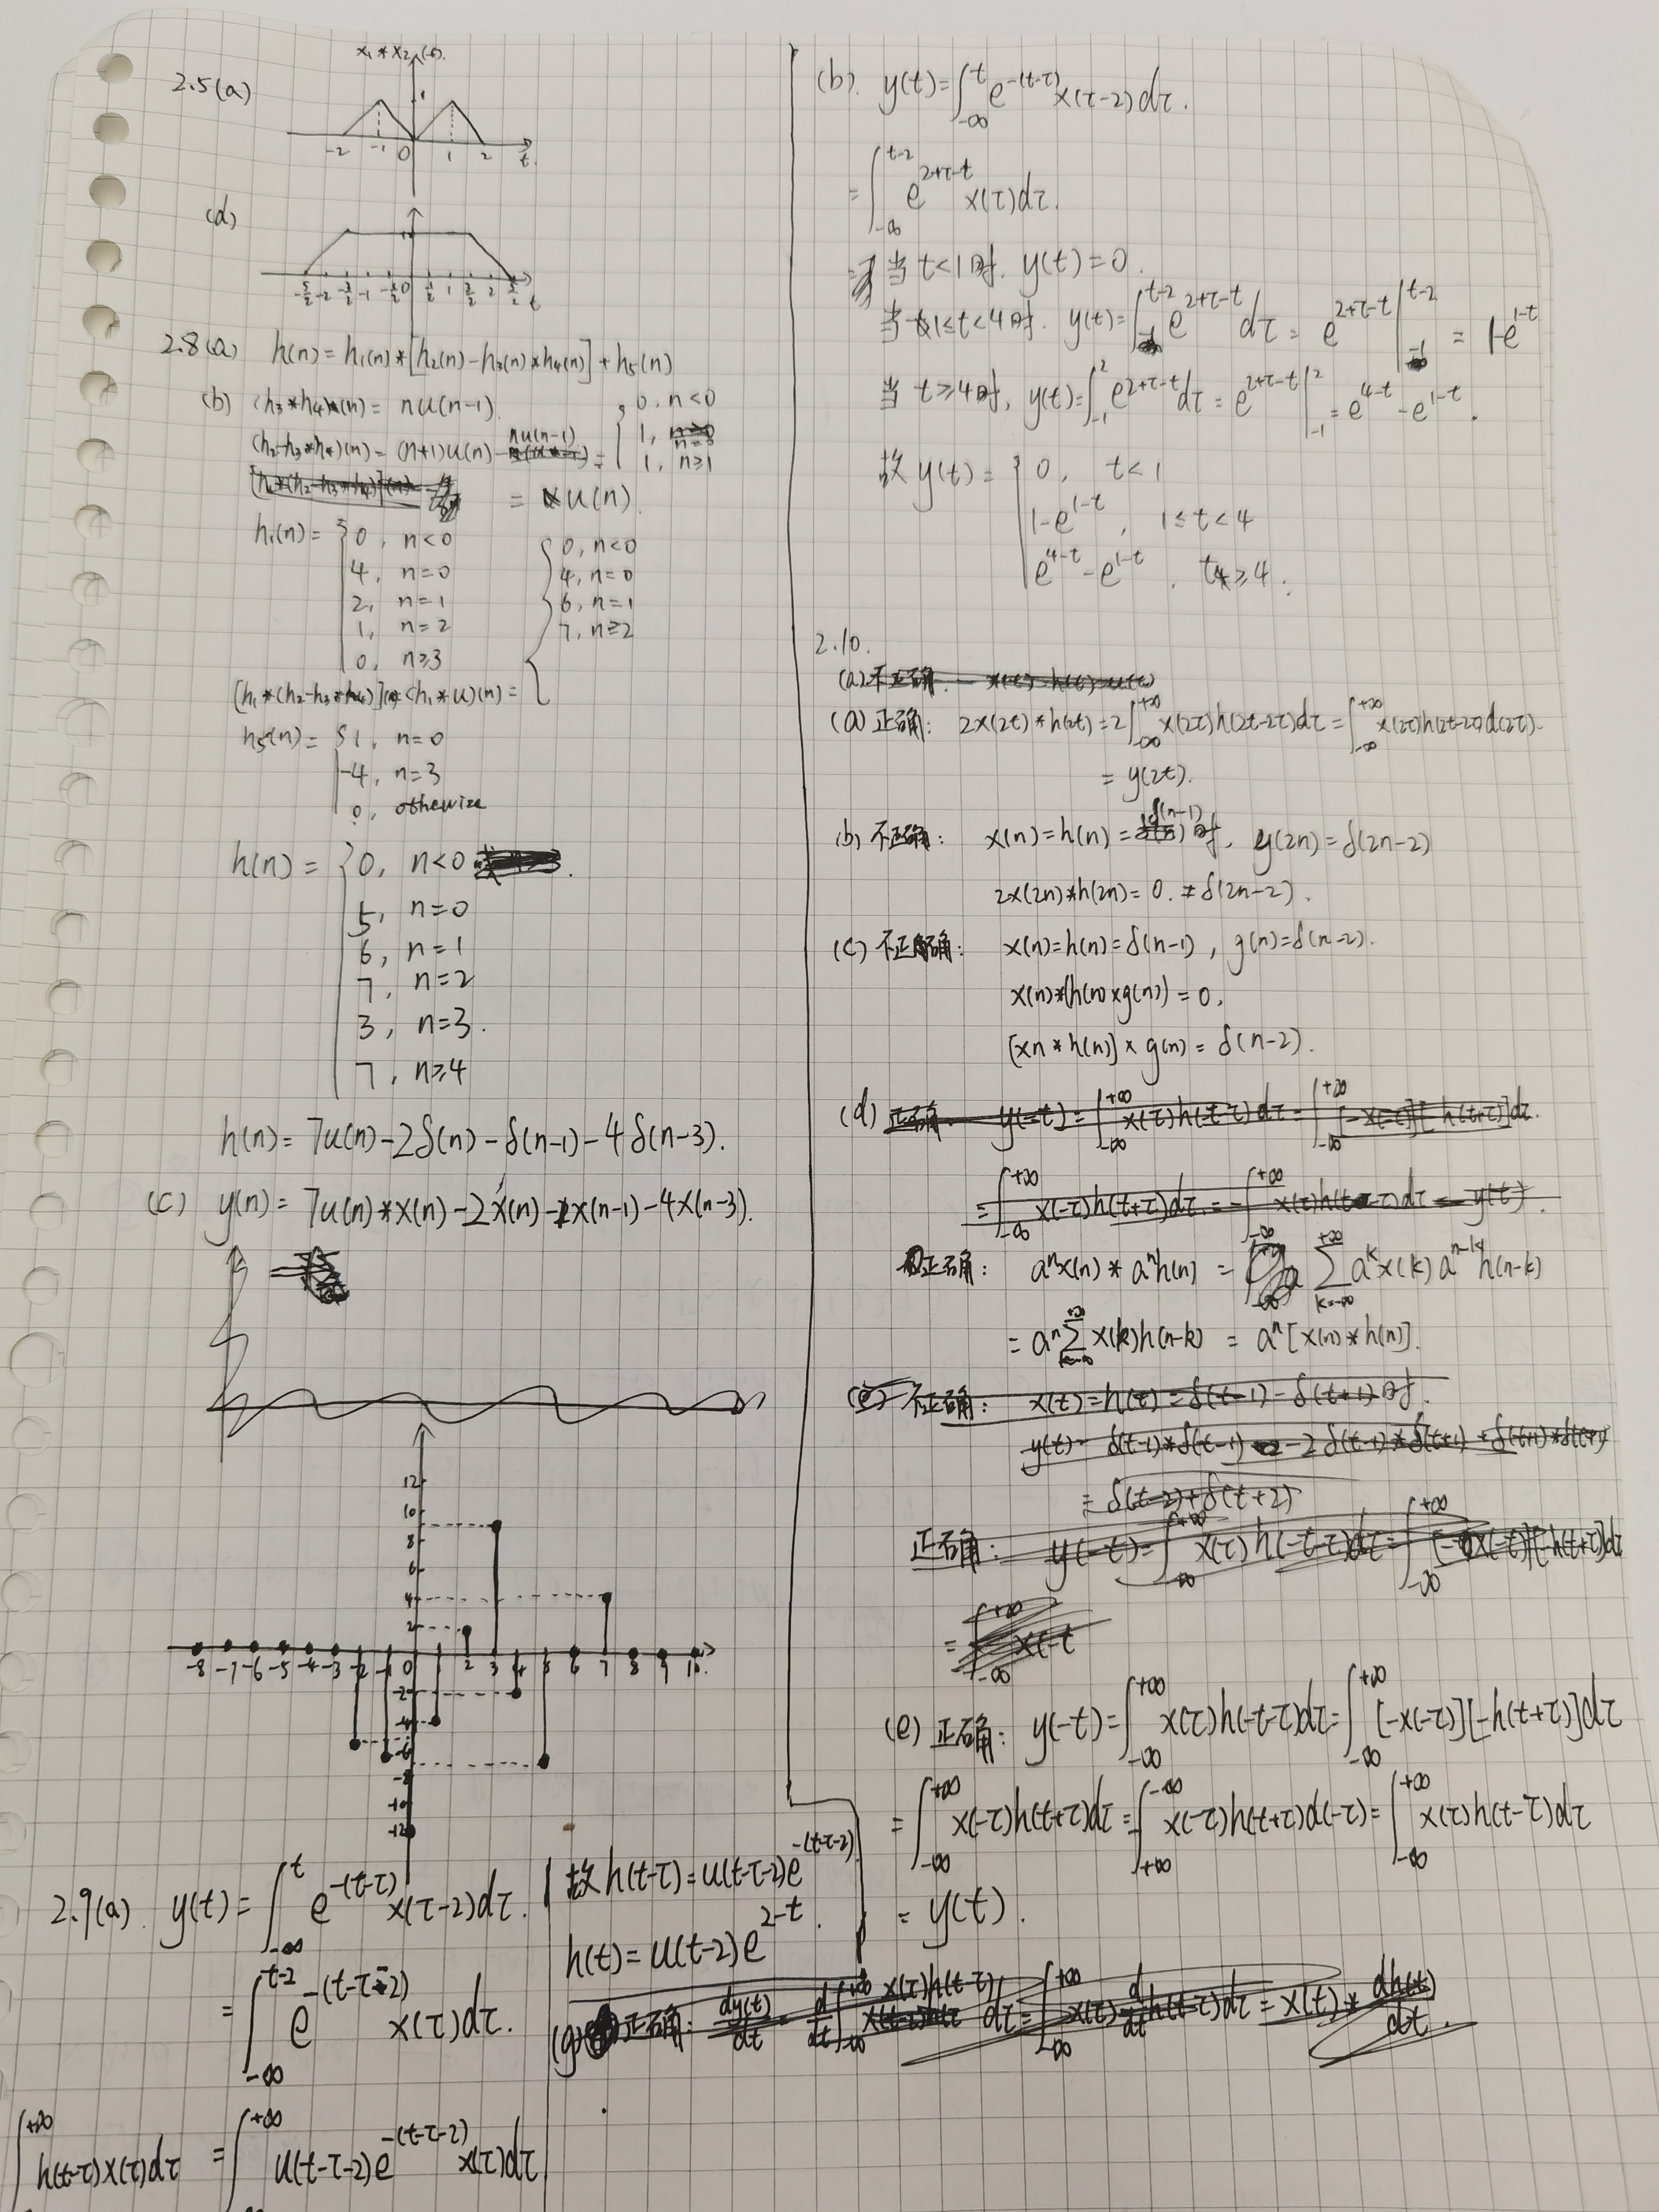 x₁*x₂(t).
2.5(a)
1
-2 -1 0 1 2 t.
(d)
-5/2 -2 -3/2 -1 -1/2 0 1/2 1 3/2 2 5/2 t
2.8(a) h(n)=h₁(n)*[h₂(n)-h₃(n)*h₄(n)]+h₅(n)
(b) (h₃*h₄)(n)=nu(n-1).
(h₂-h₃*h₄)(n)=(n+1)u(n)-nu(n-1)= { 0, n<0
1, n=0
1, n≥1
= u(n).
h₁(n)= { 0, n<0
4, n=0
2, n=1
1, n=2
0, n≥3
[h₁*(h₂-h₃*h₄)](n)=(h₁*u)(n)= { 0, n<0
4, n=0
6, n=1
7, n≥2
h₅(n)= { 1, n=0
-4, n=3
0, otherwise
h(n)= { 0, n<0
5, n=0
6, n=1
7, n=2
3, n=3.
7, n≥4
h(n)=7u(n)-2δ(n)-δ(n-1)-4δ(n-3).
(c) y(n)=7u(n)*x(n)-2x(n)-x(n-1)-4x(n-3).
12
10
8
6
4
2
-8 -7 -6 -5 -4 -3 -2 -1 0 1 2 3 4 5 6 7 8 9 10.
-2
-4
-6
-8
-10
-12
2.9(a). y(t)=∫_{-∞}^{t} e^{-(t-τ)} x(τ-2)dτ.
=∫_{-∞}^{t-2} e^{-(t-τ-2)} x(τ)dτ.
∫^{+∞} h(t-τ)x(τ)dτ =∫^{+∞} u(t-τ-2)e^{-(t-τ-2)} x(τ)dτ
故h(t-τ)=u(t-τ-2)e^{-(t-τ-2)}
h(t)=u(t-2)e^{2-t}.
(b). y(t)=∫_{-∞}^{t} e^{-(t-τ)} x(τ-2)dτ.
=∫_{-∞}^{t-2} e^{2+τ-t} x(τ)dτ.
当t<1时. y(t)=0.
当1≤t<4时. y(t)=∫_{-1}^{t-2} e^{2+τ-t} dτ = e^{2+τ-t}|_{-1}^{t-2} = 1-e^{1-t}
当t≥4时, y(t)=∫_{-1}^{2} e^{2+τ-t}dτ = e^{2+τ-t}|_{-1}^{2} = e^{4-t}-e^{1-t}.
故y(t)= { 0, t<1
1-e^{1-t}, 1≤t<4
e^{4-t}-e^{1-t}, t≥4.
2.10.
(a)正确: 2x(2t)*h(2t)=2∫_{-∞}^{+∞} x(2τ)h(2t-2τ)dτ=∫_{-∞}^{+∞} x(2τ)h(2t-2τ)d(2τ).
= y(2t).
(b)不正确: x(n)=h(n)=δ(n-1)时, y(2n)=δ(2n-2)
2x(2n)*h(2n)=0.≠δ(2n-2).
(c)不正确: x(n)=h(n)=δ(n-1), g(n)=δ(n-2).
x(n)*(h(n)×g(n))=0,
[xn*h(n)]×g(n)=δ(n-2).
(d)
正确: aⁿx(n)*aⁿh(n) = ∑_{k=-∞}^{+∞} a^k x(k) a^{n-k} h(n-k)
= aⁿ∑_{k=-∞}^{+∞} x(k)h(n-k) = aⁿ[x(n)*h(n)].
(e)正确: y(-t)=∫_{-∞}^{+∞} x(τ)h(-t-τ)dτ=∫_{-∞}^{+∞} [-x(-τ)][-h(t+τ)]dτ
=∫_{-∞}^{+∞} x(-τ)h(t+τ)dτ=∫_{+∞}^{-∞} x(-τ)h(t+τ)d(-τ)=∫_{-∞}^{+∞} x(τ)h(t-τ)dτ
= y(t).
(g)正确: